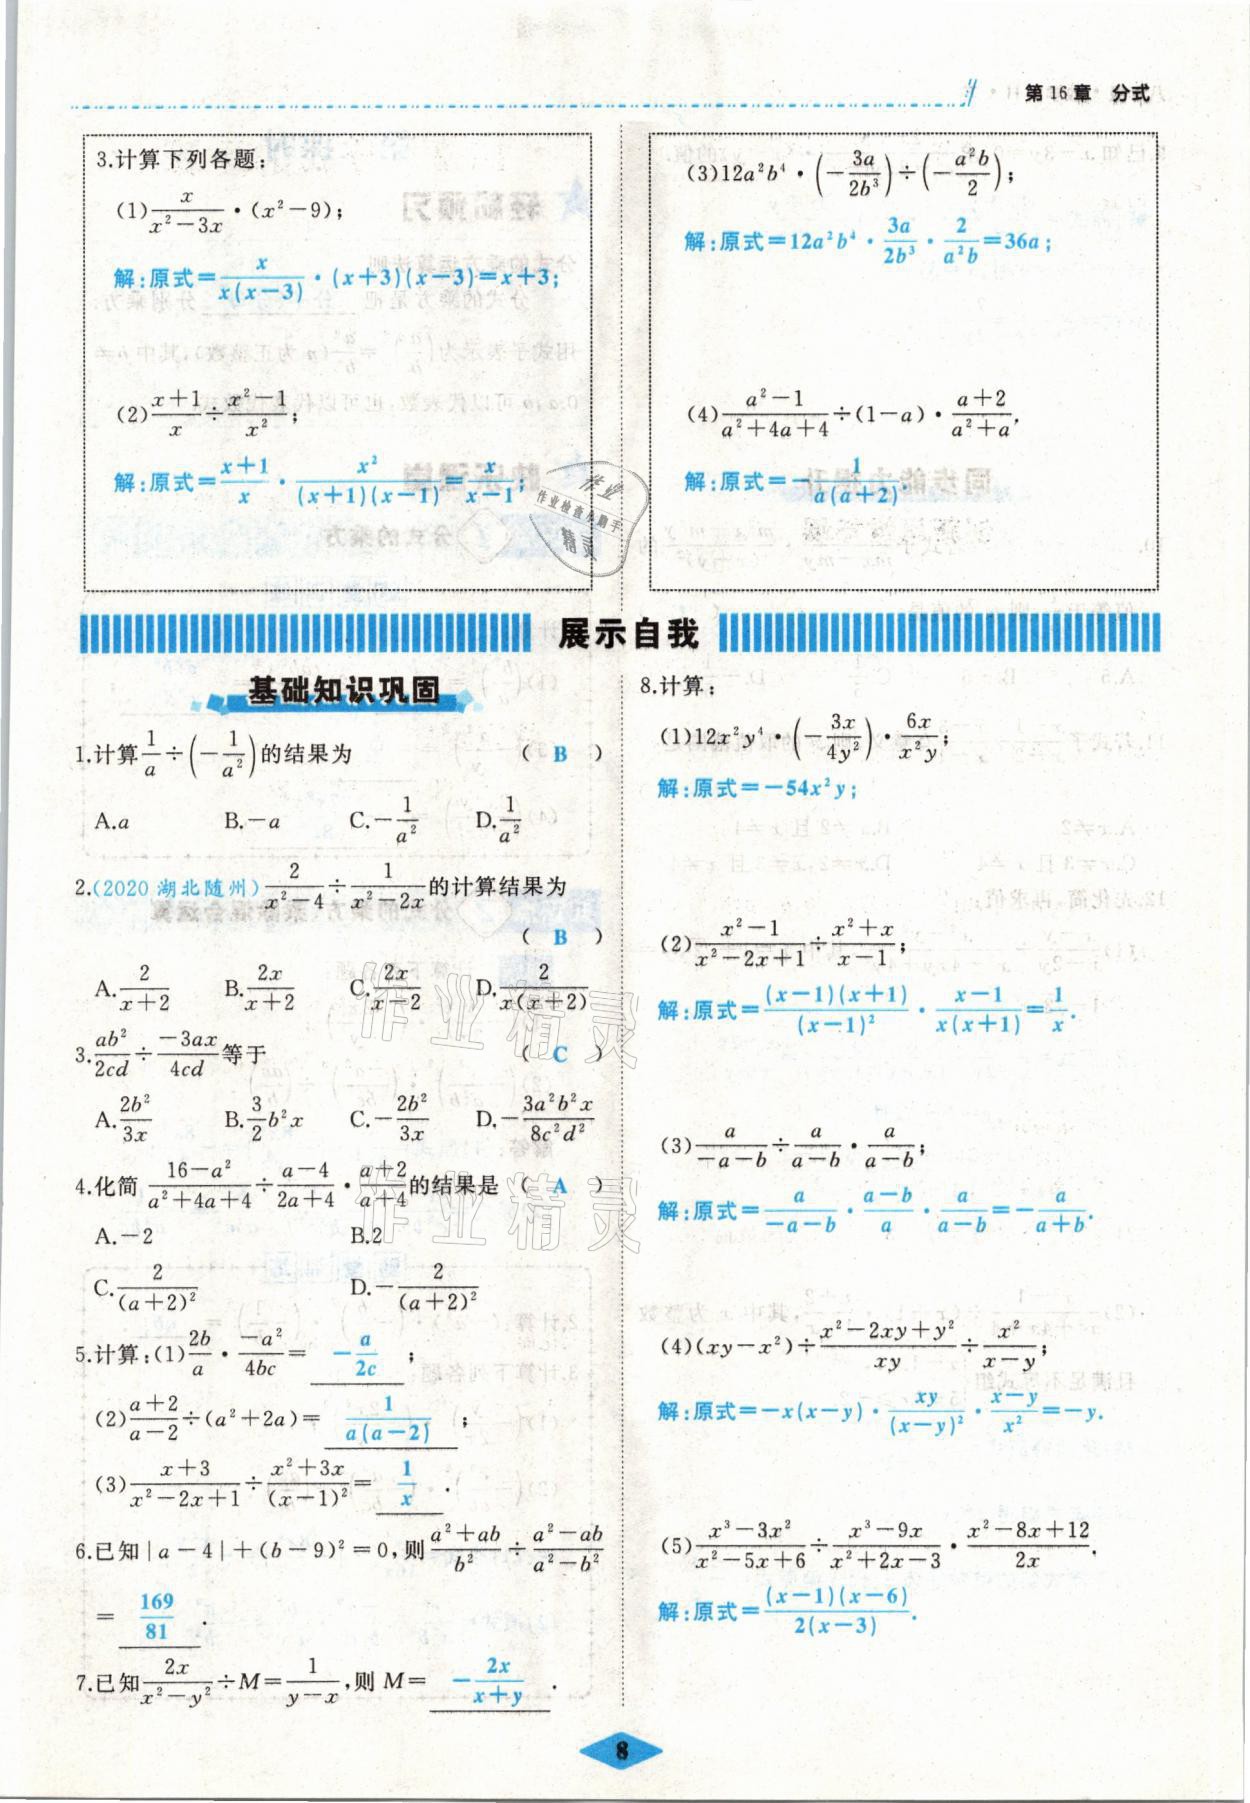 第16章 分式
3.计算下列各题:
(1) x/(x²－3x)·(x²－9);
解:原式＝x/(x(x－3))·(x＋3)(x－3)＝x＋3;
(2) (x＋1)/x÷(x²－1)/x²;
解:原式＝(x＋1)/x·x²/((x＋1)(x－1))＝x/(x－1);
(3)12a²b⁴·(－3a/2b³)÷(－a²b/2);
解:原式＝12a²b⁴·3a/2b³·2/a²b＝36a;
(4) (a²－1)/(a²＋4a＋4)÷(1－a)·(a＋2)/(a²＋a).
解:原式＝－1/(a(a＋2)).
作业
作业检查小助手
精灵
展示自我
基础知识巩固
1.计算1/a÷(－1/a²)的结果为 ( B )
A.a B.－a C.－1/a² D.1/a²
2.(2020湖北随州)2/(x²－4)÷1/(x²－2x)的计算结果为
( B )
A.2/(x＋2) B.2x/(x＋2) C.2x/(x－2) D.2/(x(x＋2))
3.ab²/2cd÷－3ax/4cd等于 ( C )
A.2b²/3x B.3/2b²x C.－2b²/3x D.－3a²b²x/8c²d²
4.化简 (16－a²)/(a²＋4a＋4)÷(a－4)/(2a＋4)·(a＋2)/(a＋4)的结果是 ( A )
A.－2 B.2
C.2/(a＋2)² D.－2/(a＋2)²
5.计算:(1)2b/a·－a²/4bc＝ －a/2c ;
(2)(a＋2)/(a－2)÷(a²＋2a)＝ 1/(a(a－2)) ;
(3)(x＋3)/(x²－2x＋1)÷(x²＋3x)/(x－1)²＝ 1/x .
6.已知|a－4|＋(b－9)²＝0,则(a²＋ab)/b²÷(a²－ab)/(a²－b²)
＝ 169/81 .
7.已知2x/(x²－y²)÷M＝1/(y－x),则M＝ －2x/(x＋y) .
8.计算:
(1)12x²y⁴·(－3x/4y²)·6x/x²y;
解:原式＝－54x²y;
(2)(x²－1)/(x²－2x＋1)÷(x²＋x)/(x－1);
解:原式＝(x－1)(x＋1)/(x－1)²·(x－1)/(x(x＋1))＝1/x.
(3)a/(－a－b)÷a/(a－b)·a/(a－b);
解:原式＝a/(－a－b)·(a－b)/a·a/(a－b)＝－a/(a＋b).
(4)(xy－x²)÷(x²－2xy＋y²)/xy÷x²/(x－y);
解:原式＝－x(x－y)·xy/(x－y)²·(x－y)/x²＝－y.
(5)(x³－3x²)/(x²－5x＋6)÷(x³－9x)/(x²＋2x－3)·(x²－8x＋12)/2x.
解:原式＝(x－1)(x－6)/2(x－3).
作业精灵
作业精灵
8